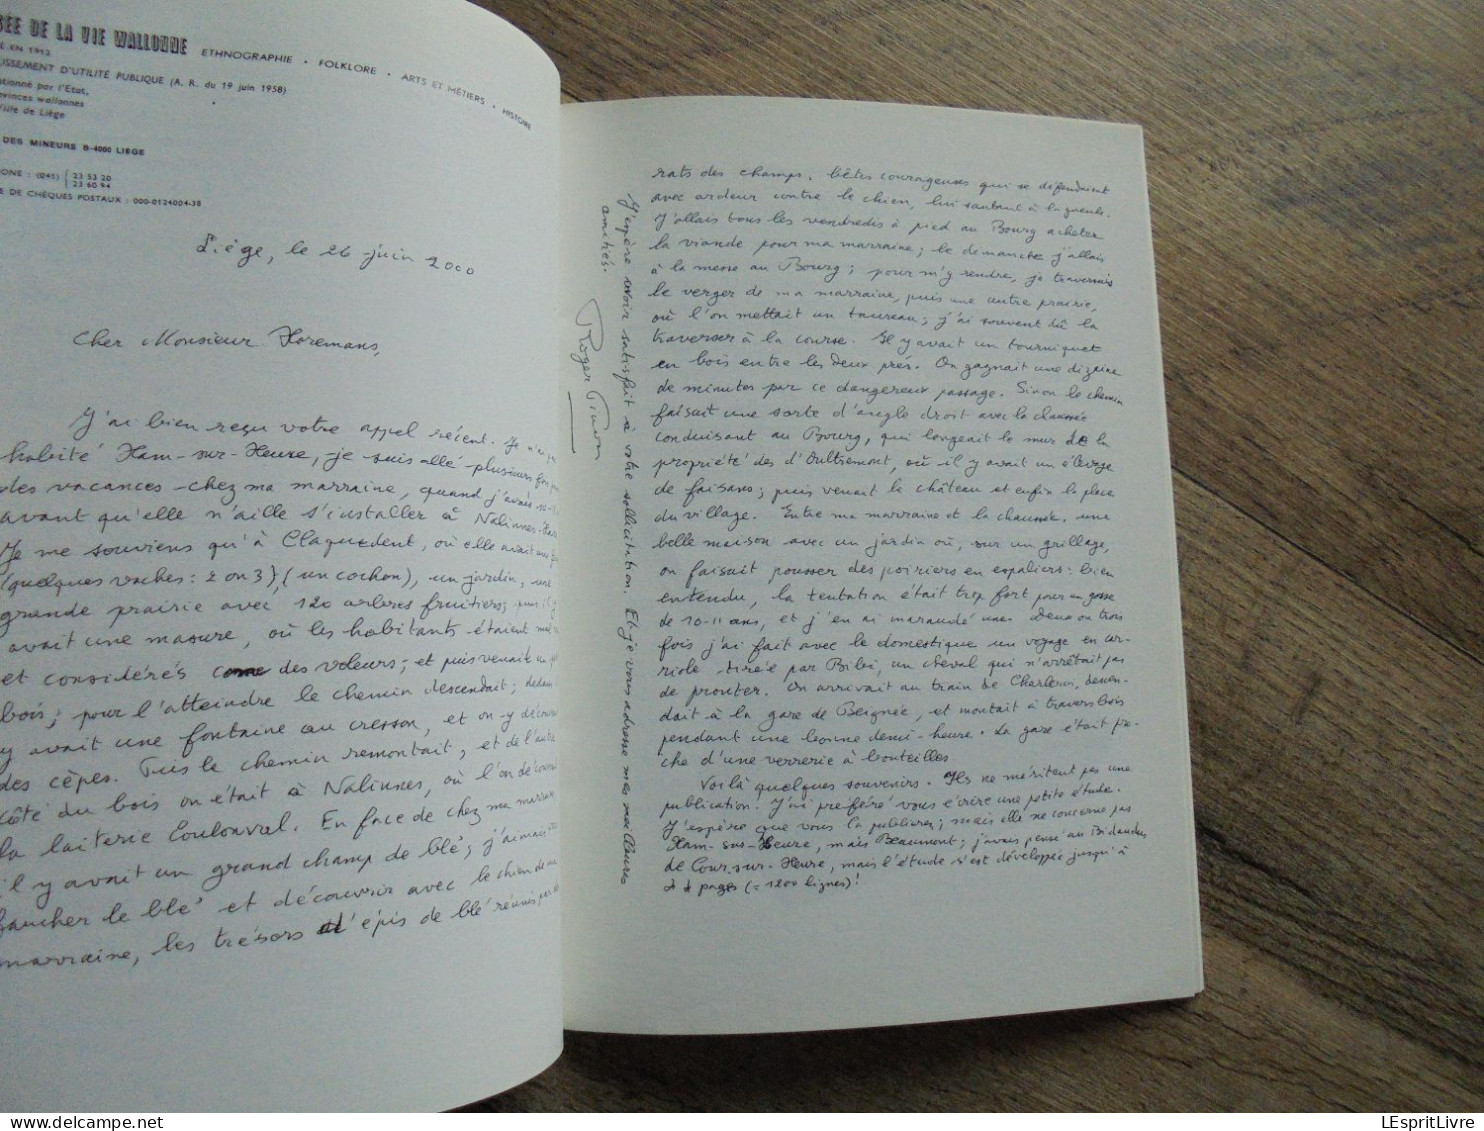 SÉE DE LA VIE WALLONNE ETHNOGRAPHIE • FOLKLORE • ARTS ET MÉTIERS • HISTOIRE
É EN 1913
LISSEMENT D'UTILITÉ PUBLIQUE (A. R. du 19 juin 1958)
tionné par l'Etat,
ovinces wallonnes
Ville de Liège
DES MINEURS B-4000 LIEGE
ONE : (041) 23 53 20
23 60 94
E DE CHÈQUES POSTAUX : 000-0124004-38
Liège, le 26 juin 2000
Cher Monsieur Horemans,
J'ai bien reçu votre appel récent. Je n'ai
habité Ham-sur-Heure, je suis allé plusieurs fois
des vacances chez ma marraine, quand j'avais
avant qu'elle n'aille s'installer à Nalinnes-
Je me souviens qu'à Claquedent, où elle avait une
(quelques vaches : 2 ou 3), (un cochon), un jardin, une
grande prairie avec 120 arbres fruitiers; puis il y
avait une masure, où les habitants étaient
et considérés comme des voleurs; et puis venait un
bois; pour l'atteindre le chemin descendait; dedans
y avait une fontaine au cresson, et on y découvrait
des cèpes. Puis le chemin remontait, et de l'autre
côté du bois on était à Nalinnes, où l'on
la laiterie Coulonval. En face de chez ma marraine
il y avait un grand champ de blé; j'aimais
faucher le blé et découvrir avec le chien de ma
marraine, les trésors d'épis de blé réunis par
rats des champs, bêtes courageuses qui se défendaient
avec ardeur contre le chien, lui sautant à la gueule.
J'allais tous les vendredis à pied au Bourg acheter
la viande pour ma marraine; le dimanche j'allais
à la messe au Bourg; pour m'y rendre, je traversais
le verger de ma marraine, puis une autre prairie,
où l'on mettait un taureau; j'ai souvent dû la
traverser à la course. Il y avait un tourniquet
en bois entre les deux prés. On gagnait une dizaine
de minutes par ce dangereux passage. Sinon le chemin
faisait une sorte d'angle droit avec la chaussée
conduisant au Bourg, qui longeait le mur de la
propriété des d'Oultremont, où il y avait un élevage
de faisans; puis venait le château et enfin la place
du village. Entre ma marraine et la chaussée, une
belle maison avec un jardin où, sur un grillage,
on faisait pousser des poiriers en espaliers : bien
entendu, la tentation était trop fort pour un gosse
de 10-11 ans, et j'en ai maraudé une. Deux ou trois
fois j'ai fait avec le domestique un voyage en car-
riole tirée par Bibi, un cheval qui n'arrêtait pas
de prouter. On arrivait au train de Charleroi, descen-
dait à la gare de Beignée, et montait à travers bois
pendant une bonne demi-heure. La gare était pro-
che d'une verrerie à bouteilles.
Voilà quelques souvenirs. Ils ne méritent pas une
publication. J'ai préféré vous écrire une petite étude.
J'espère que vous la publierez; mais elle ne concerne pas
Ham-sur-Heure, mais Beaumont; j'avais pensé au Bidaudes
de Cour-sur-Heure, mais l'étude s'est développée jusqu'à
pages (= 1200 lignes)!
J'espère avoir satisfait à votre sollicitation. Et je vous adresse mes meilleures
amitiés.
Roger Pinon
LEspritLivre